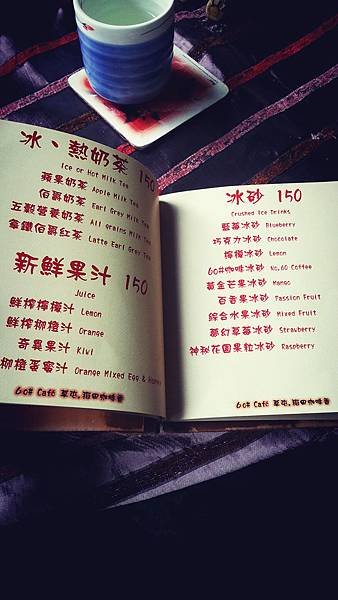 冰、熱奶茶 150
Ice or Hot Milk Tea
蘋果奶茶 Apple Milk Tea
伯爵奶茶 Earl Grey Milk Tea
五穀營養奶茶 All grains Milk Tea
拿鐵伯爵紅茶 Latte Earl Grey Tea
新鮮果汁 150
Juice
鮮榨檸檬汁 Lemon
鮮榨柳橙汁 Orange
奇異果汁 Kiwi
柳橙蛋蜜汁 Orange Mixed Egg & Honey
60# Café 草屯.
冰砂 150
Crushed Ice Drinks
藍莓冰砂 Blueberry
巧克力冰砂 Chocolate
檸檬冰砂 Lemon
60#咖啡冰砂 No.60 Coffee
黃金芒果冰砂 Mango
百香果冰砂 Passion Fruit
綜合水果冰砂 Mixed Fruit
夢幻草莓冰砂 Strawberry
神秘花園果粒冰砂 Raspberry
60# Café 草屯.